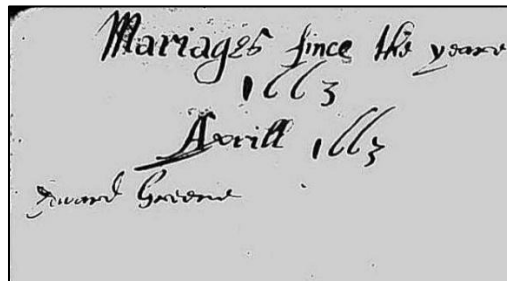 Mariages since the yeare
1663
Aprill 1663
Edward Greene